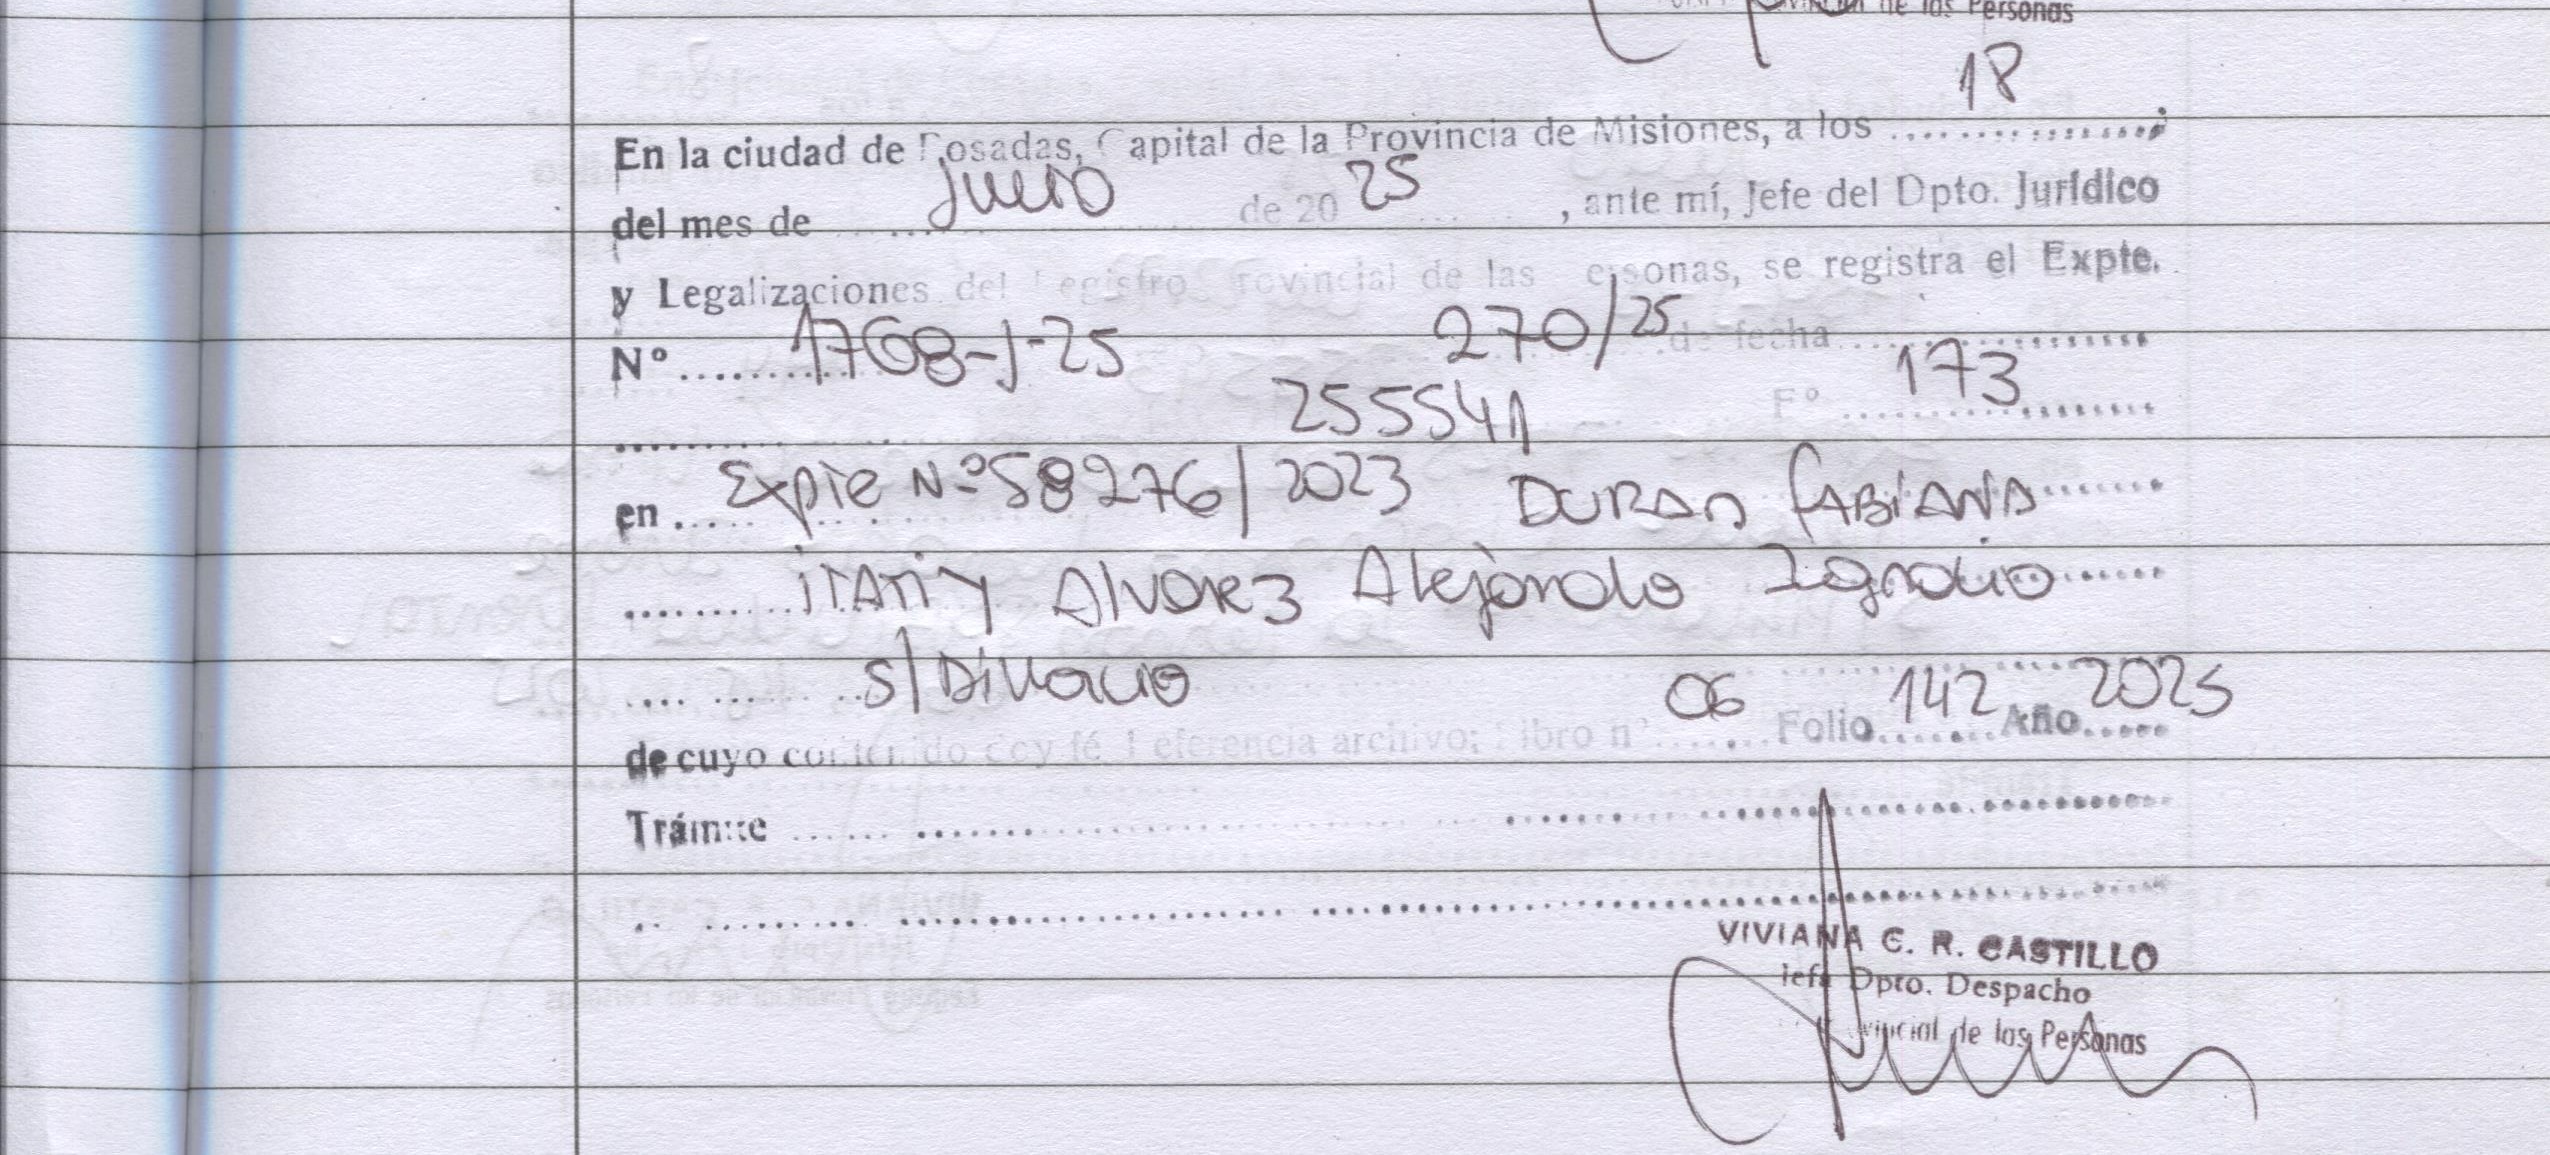 de las Personas
18
En la ciudad de Posadas, Capital de la Provincia de Misiones, a los ................
del mes de ... Julio de 2025 ..., ante mí, Jefe del Dpto. Jurídico
y Legalizaciones del Registro Provincial de las Personas, se registra el Expte.
Nº .......... 1768-J-25 270/25 de fecha ................
255541 Fº 173 ................
en .... Expte Nº 58276/2023 DURAN FABIANA ........
.......... ITATI y Alvarez Alejandro Ignacio ......
.... ...... .. S/Divorcio
de cuyo contenido doy fé. Referencia archivo: Libro nº 06 Folio 142 Año 2025
Trámite ................................
................................
VIVIANA C. R. CASTILLO
Jefa Dpto. Despacho
Provincial de las Personas